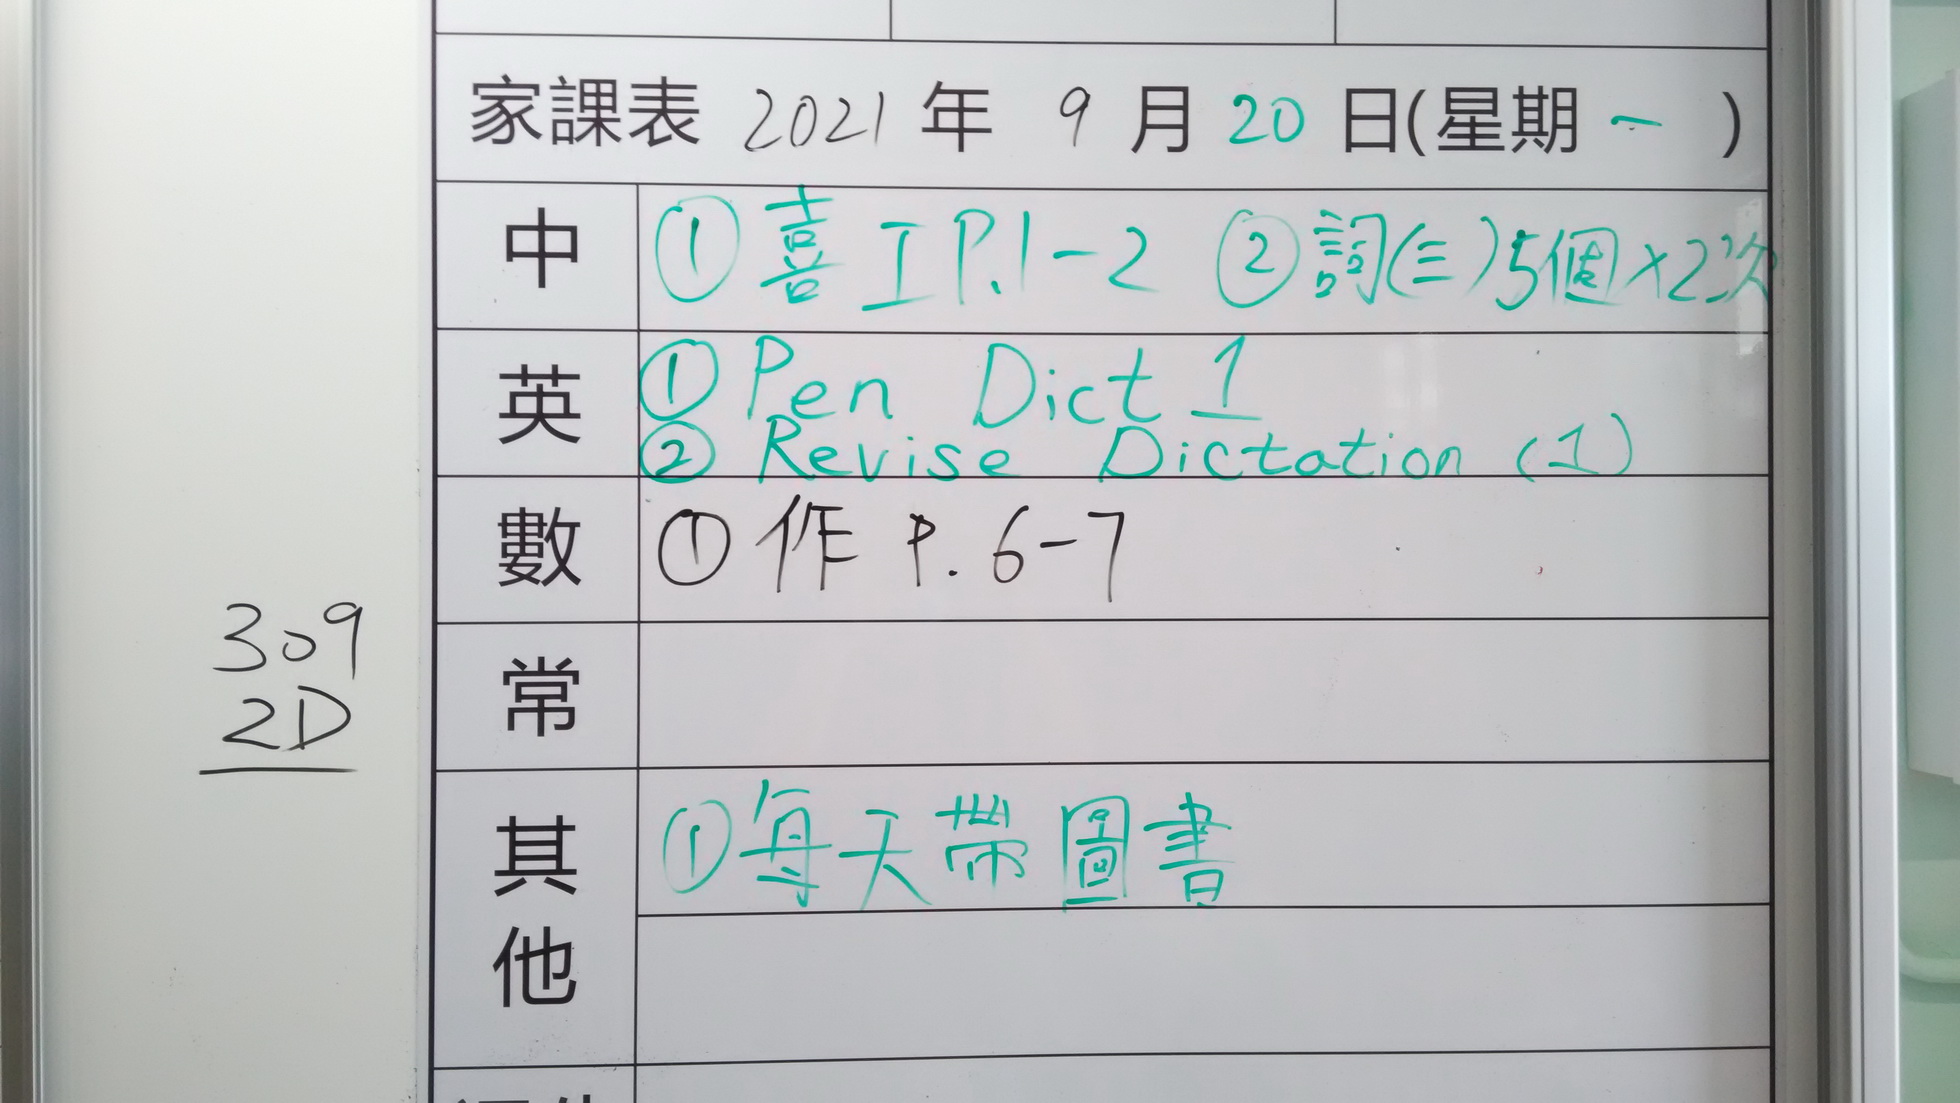 家課表 2021 年 9 月 20 日(星期 一 )
中 ①喜 I P.1-2 ②詞(三)5個×2次
英 ① Pen Dict 1
② Revise Dictation (1)
數 ① 作 P. 6-7
309
2D
常
其他 ①每天帶圖書